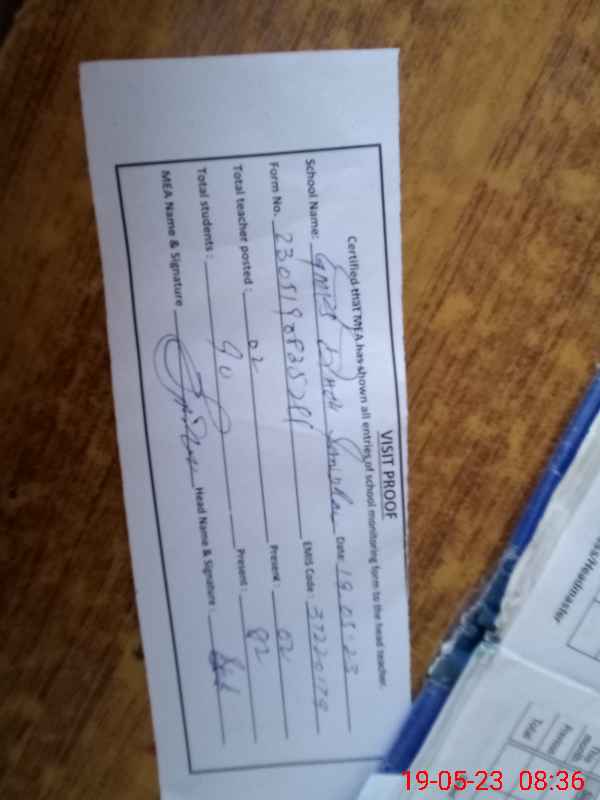 VISIT PROOF
Certified that MEA has shown all entries of school monitoring form to the head teacher.
School Name: GMPS Date: 19.05.23
Form No. EMIS Code: 37220179
Total teacher posted: 02 Present: 02
Total students: 90 Present: 82
MEA Name & Signature Head Name & Signature:
ss/Headmaster
Total
Present
19-05-23 08:36